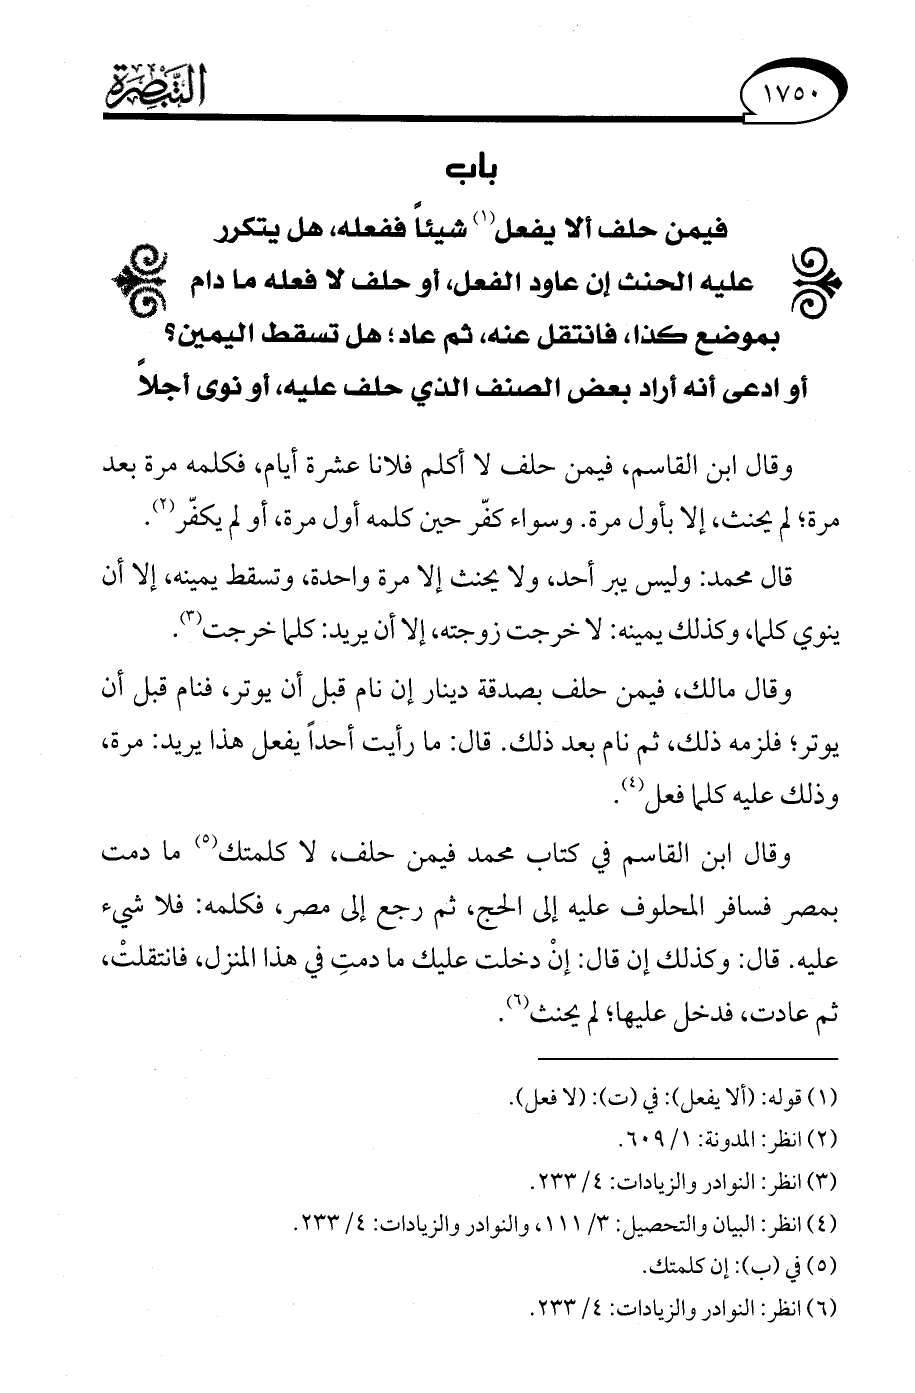 ١٧٥٠
التبصرة
باب
فيمن حلف ألا يفعل(١) شيئاً ففعله، هل يتكرر
عليه الحنث إن عاود الفعل، أو حلف لا فعله ما دام
بموضع كذا، فانتقل عنه، ثم عاد؛ هل تسقط اليمين؟
أو ادعى أنه أراد بعض الصنف الذي حلف عليه، أو نوى أجلاً
وقال ابن القاسم، فيمن حلف لا أكلم فلانا عشرة أيام، فكلمه مرة بعد
مرة؛ لم يحنث، إلا بأول مرة. وسواء كفّر حين كلمه أول مرة، أو لم يكفّر(٢).
قال محمد: وليس يبر أحد، ولا يحنث إلا مرة واحدة، وتسقط يمينه، إلا أن
ينوي كلما، وكذلك يمينه: لا خرجت زوجته، إلا أن يريد: كلما خرجت(٣).
وقال مالك، فيمن حلف بصدقة دينار إن نام قبل أن يوتر، فنام قبل أن
يوتر؛ فلزمه ذلك، ثم نام بعد ذلك. قال: ما رأيت أحداً يفعل هذا يريد: مرة،
وذلك عليه كلما فعل(٤).
وقال ابن القاسم في كتاب محمد فيمن حلف، لا كلمتك(٥) ما دمت
بمصر فسافر المحلوف عليه إلى الحج، ثم رجع إلى مصر، فكلمه: فلا شيء
عليه. قال: وكذلك إن قال: إنْ دخلت عليك ما دمتِ في هذا المنزل، فانتقلتْ،
ثم عادت، فدخل عليها؛ لم يحنث(٦).
(١) قوله: (ألا يفعل): في (ت): (لا فعل).
(٢) انظر: المدونة: ١/ ٦٠٩.
(٣) انظر: النوادر والزيادات: ٤/ ٢٣٣.
(٤) انظر: البيان والتحصيل: ٣/ ١١١، والنوادر والزيادات: ٤/ ٢٣٣.
(٥) في (ب): إن كلمتك.
(٦) انظر: النوادر والزيادات: ٤/ ٢٣٣.